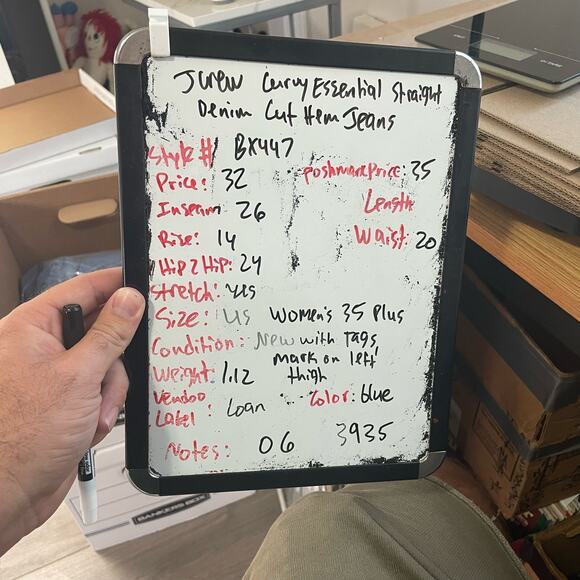 Jcrew Curvy Essential Straight
Denim Cut Hem Jeans
Style # BX447
Price: 32 poshmark Price: 35
Inseam 26 Length
Rise: 14 Waist: 20
Hip 2 Hip: 24
Stretch: yes
Size: US Women's 35 Plus
Condition: New with Tags,
mark on left
thigh
Weight: 1.12
Vendoo
Label: Loan Color: blue
Notes: 06 3935
BANKERS BOX